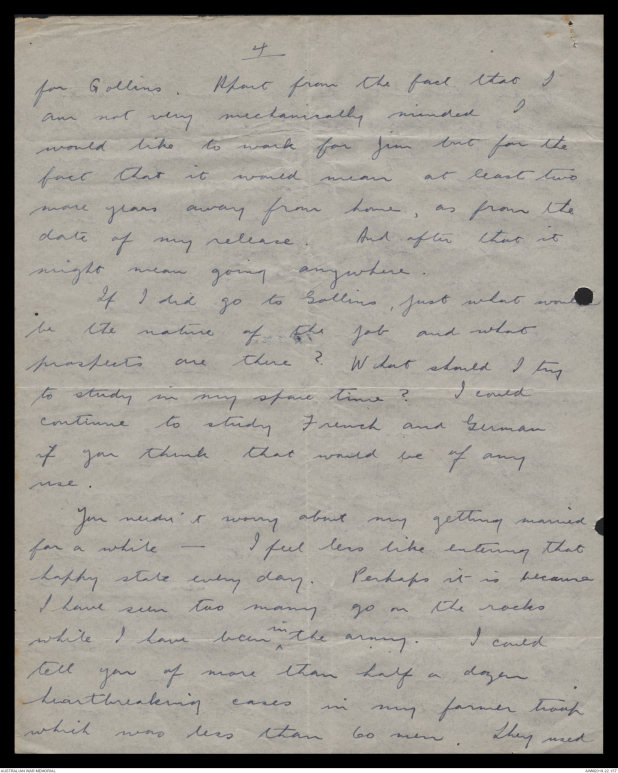 4
for Gollins. Apart from the fact that I
am not very mechanically minded I
would like to work for Jim but for the
fact that it would mean at least two
more years away from home, as from the
date of my release. And after that it
might mean going anywhere.
If I did go to Gollins, just what would
be the nature of the job and what
prospects are there? What should I try
to study in my spare time? I could
continue to study French and German
if you think that would be of any
use.
You needn't worry about my getting married
for a while — I feel less like entering that
happy state every day. Perhaps it is because
I have seen too many go on the rocks
while I have been in the army. I could
tell you of more than half a dozen
heartbreaking cases in my former troop
which was less than 60 men. They used
AUSTRALIAN WAR MEMORIAL